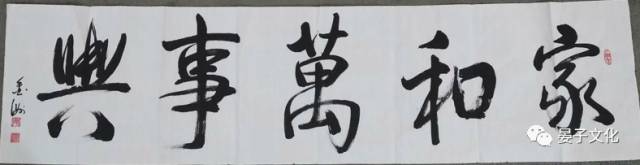 家和萬事興
晏子文化